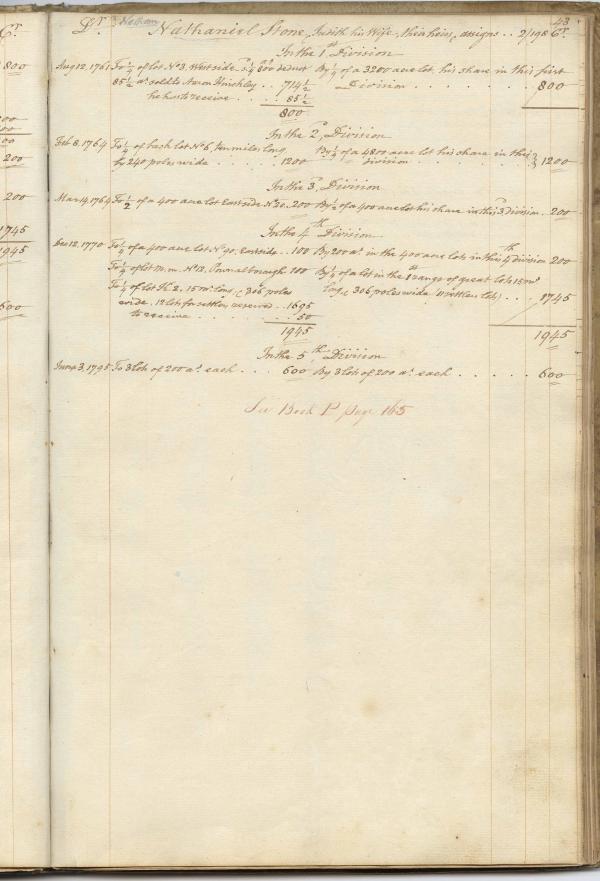 43
Dr. Nathan Nathaniel Stone, Judith his Wife, their heirs, assigns .. 2/198 Cr.
In the 1st Division
Aug 12, 1761 To 1/4 of lot No 3, West side 800 deduct By 1/4 of a 3200 acre lot, his share in this first
85 1/2 as. sold to Aaron Hinckley .. 714 1/2 Division . . . . . . 800
he has to receive . . . 85 1/2
800
In the 2d Division
Feb 8, 1764 To 1/4 of back lot No 6, ten miles long By 1/4 of a 4800 acre lot his share in this
by 240 poles wide . . . . 1200 division . . . . . . } 1200
In the 3d Division
Mar 14, 1764 To 1/2 of a 400 acre lot East side No 20. 200 By 1/2 of a 400 acre lot his share in this 3d Division .. 200
In the 4th Division
Dec 12, 1770 To 1/4 of a 400 acre lot No 90, East side .. 100 By 200 as. in the 400 acre lots in this 4th division 200
To 1/4 of lot No 12, Pownalborough 100 By 1/4 of a lot in the 1st range of great lots 15 ms.
To 1/4 of lot 2, 15 ms. long, 306 poles long, 306 poles wide . . . 1745
wide, 12 lots for settlers reserved .. 1695
to receive . . . . . 50
1945 1945
In the 5th Division
June 3, 1795 To 3 lots of 200 as. each . . . 600 By 3 lots of 200 as. each . . . . . 600
See Book P page 165
Cr.
800
00
00
200
200
1745
1945
600